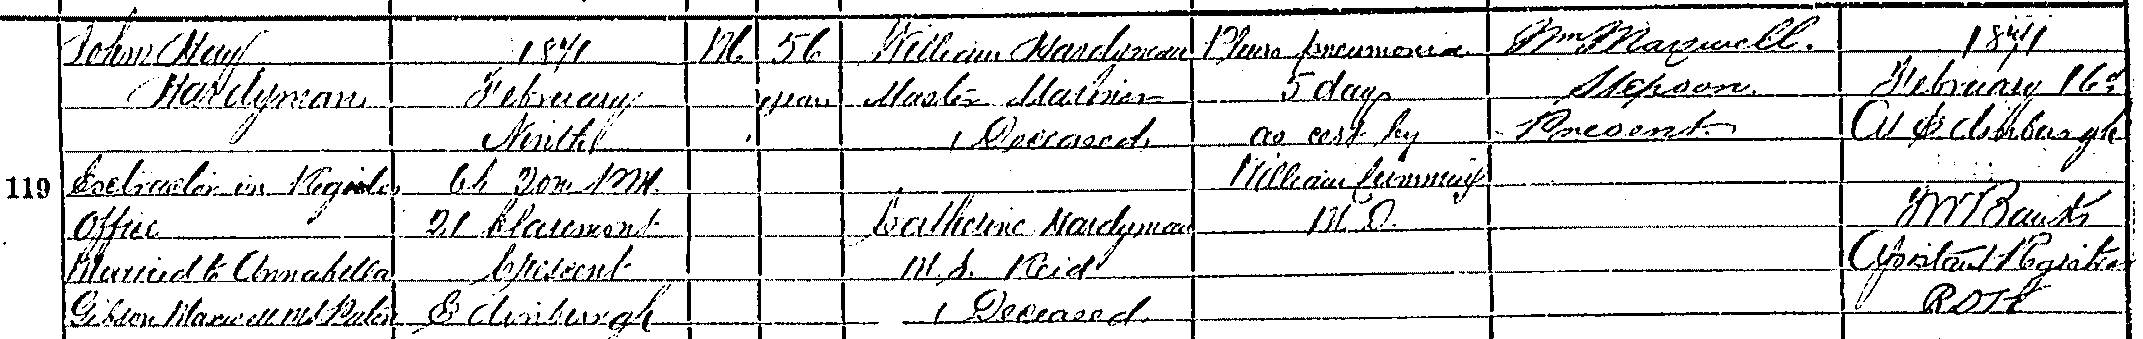 119
John Hay
Hardyman
Extractor in Register
Office
Married to Annabella
Gibson Maxwell MS
1871
February
Ninth
6h 20m PM.
21 Claremont
Crescent
Edinburgh
M.
56
years
William Hardyman
Master Mariner
Deceased
Catherine Hardyman
M.S. Reid
Deceased
Pleuro pneumonia
5 days
as cert by
William Cumming
M.D.
Wm Maxwell.
Stepson.
Present
1871
February 16th
At Edinburgh
Assistant Registrar